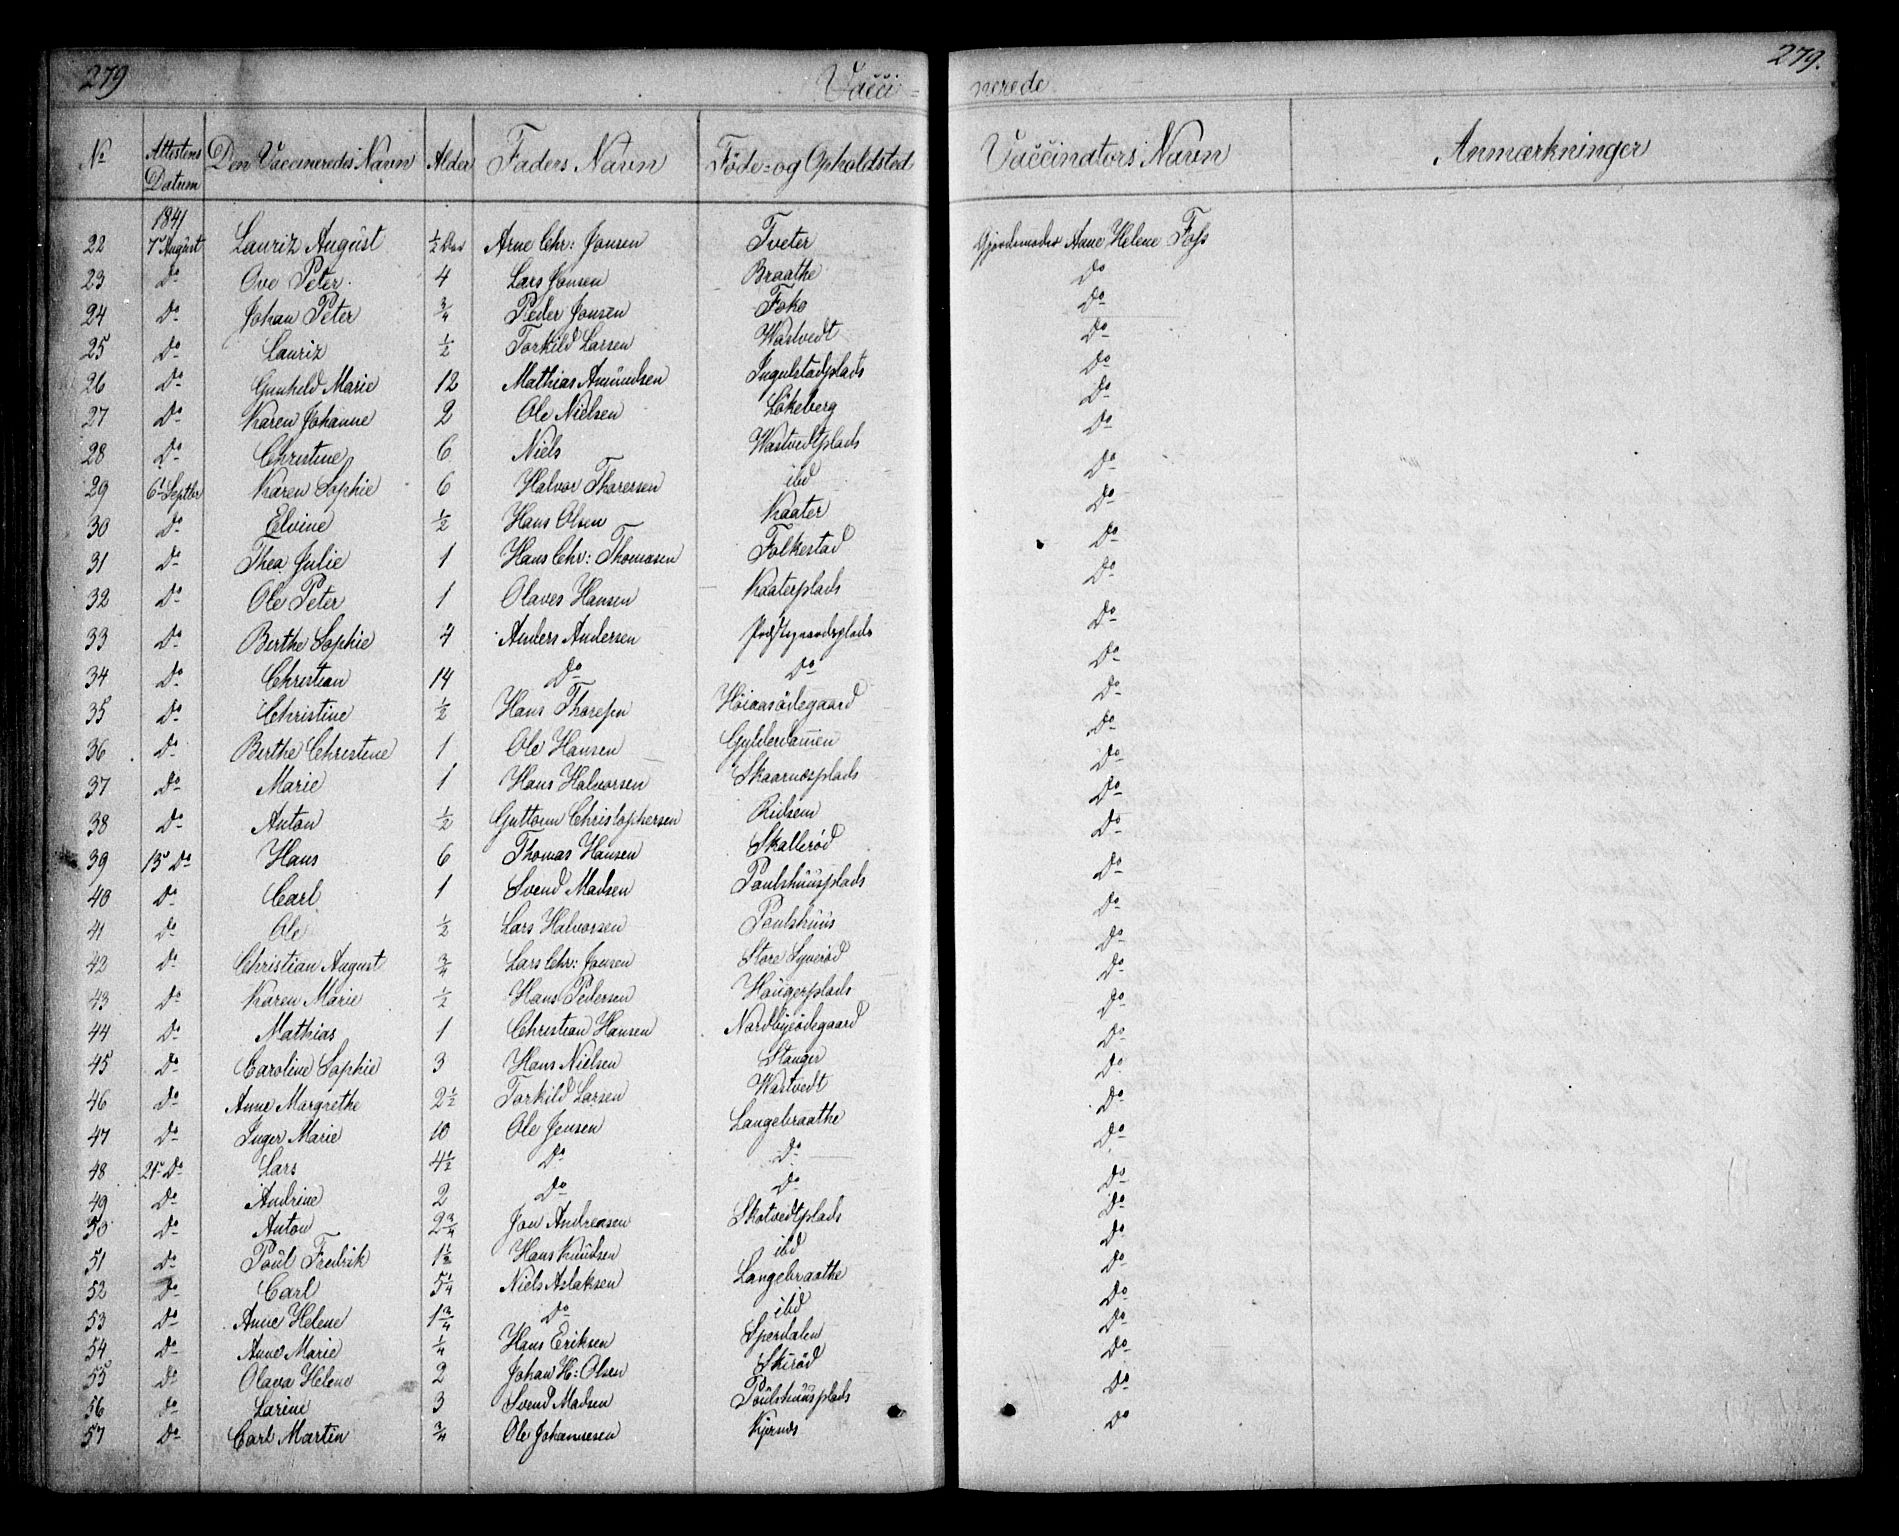 279 Vacci-nerede 279.
No Attestens Datum Den Vaccineredes Navn Alder Faders Navn Føde- og Opholdsted Vaccinators Navn Anmærkninger
1841
22 7de August Lauriz August ½ Aar Arne Chr: Jonsen Tveter Gjordemoder Anne Helene Foss
23 Do Ove Peter 4 Lars Jonsen Braathe Do
24 Do Johan Peter ¾ Peder Jonsen Foko Do
25 Do Lauriz ½ Torkild Larsen Wastvedt Do
26 Do Gunhild Marie 12 Mathias Amundsen Ingulstadplads Do
27 Do Karen Johanne 2 Ole Nielsen Lökeberg Do
28 Do Christine 6 Niels Wastvedtplads Do
29 6t Septbr Karen Sophie 6 Halvor Thoresen ibd Do
30 Do Elvine ½ Hans Olsen Kaater Do
31 Do Thea Julie 1 Hans Chr: Thomasen Folkestad Do
32 Do Ole Peter 1 Olaves Hansen Kaaterplads Do
33 Do Berthe Sophie 4 Anders Andersen Do
34 Do Christian 14 Do Do Do
35 Do Christine ½ Hans Thoresen Høiaasødegaard Do
36 Do Berthe Christine 1 Ole Hansen Gylderdamen Do
37 Do Marie 1 Hans Halvorsen Skaarnæsplads Do
38 Do Anton ½ Guttorm Christophersen Rülsem Do
39 13de Do Hans 6 Thomas Hansen Skallerød Do
40 Do Carl 1 Svend Madsen Poulshuusplads Do
41 Do Ole ½ Lars Halvorsen Poulshuus Do
42 Do Christian August ¾ Lars Chr: Jonsen Store Syverød Do
43 Do Karen Marie ½ Hans Pedersen Haugerplads Do
44 Do Mathias 1 Christian Hansen Nordbyeødegaard Do
45 Do Caroline Sophie 3 Hans Nielsen Stanger Do
46 Do Anne Margrethe 2½ Torkild Larsen Wastvedt Do
47 Do Inger Marie 10 Ole Jensen Langebraathe Do
48 21de Do Lars 4½ Do Do Do
49 Do Andrine 2 Do Do Do
50 Do Anton 2¾ Jon Andreasen Skotvedtplads Do
51 Do Poul Fredrik 1½ Hans Knudsen ibd Do
52 Do Carl 5¼ Niels Aslaksen Langebraathe Do
53 Do Anne Helene 1¾ Do ibd Do
54 Do Anne Marie ¼ Hans Eriksen Sperdalen Do
55 Do Olava Helene 2 Johan H: Olsen Skirød Do
56 Do Larine 3 Svend Madsen Poulshuusplads Do
57 Do Carl Martin ¾ Ole Johannesen Kjernes Do